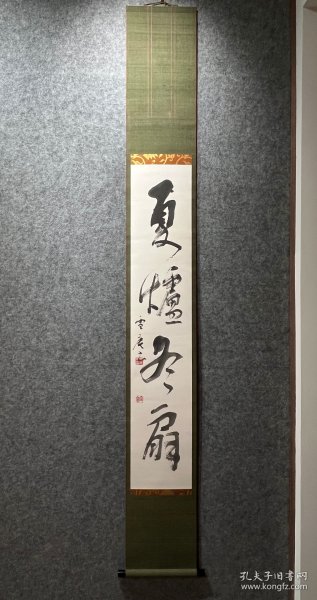 夏爐冬扇
孔夫子旧书网
www.kongfz.com